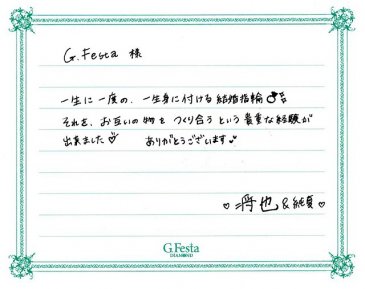 G.Festa 様
一生に一度の、一生身に付ける結婚指輪💍
それを、お互いの物をつくり合うという貴重な経験が
出来ました♡ ありがとうございます♪
♡ 将也 & 純夏 ♡
G.Festa
DIAMOND